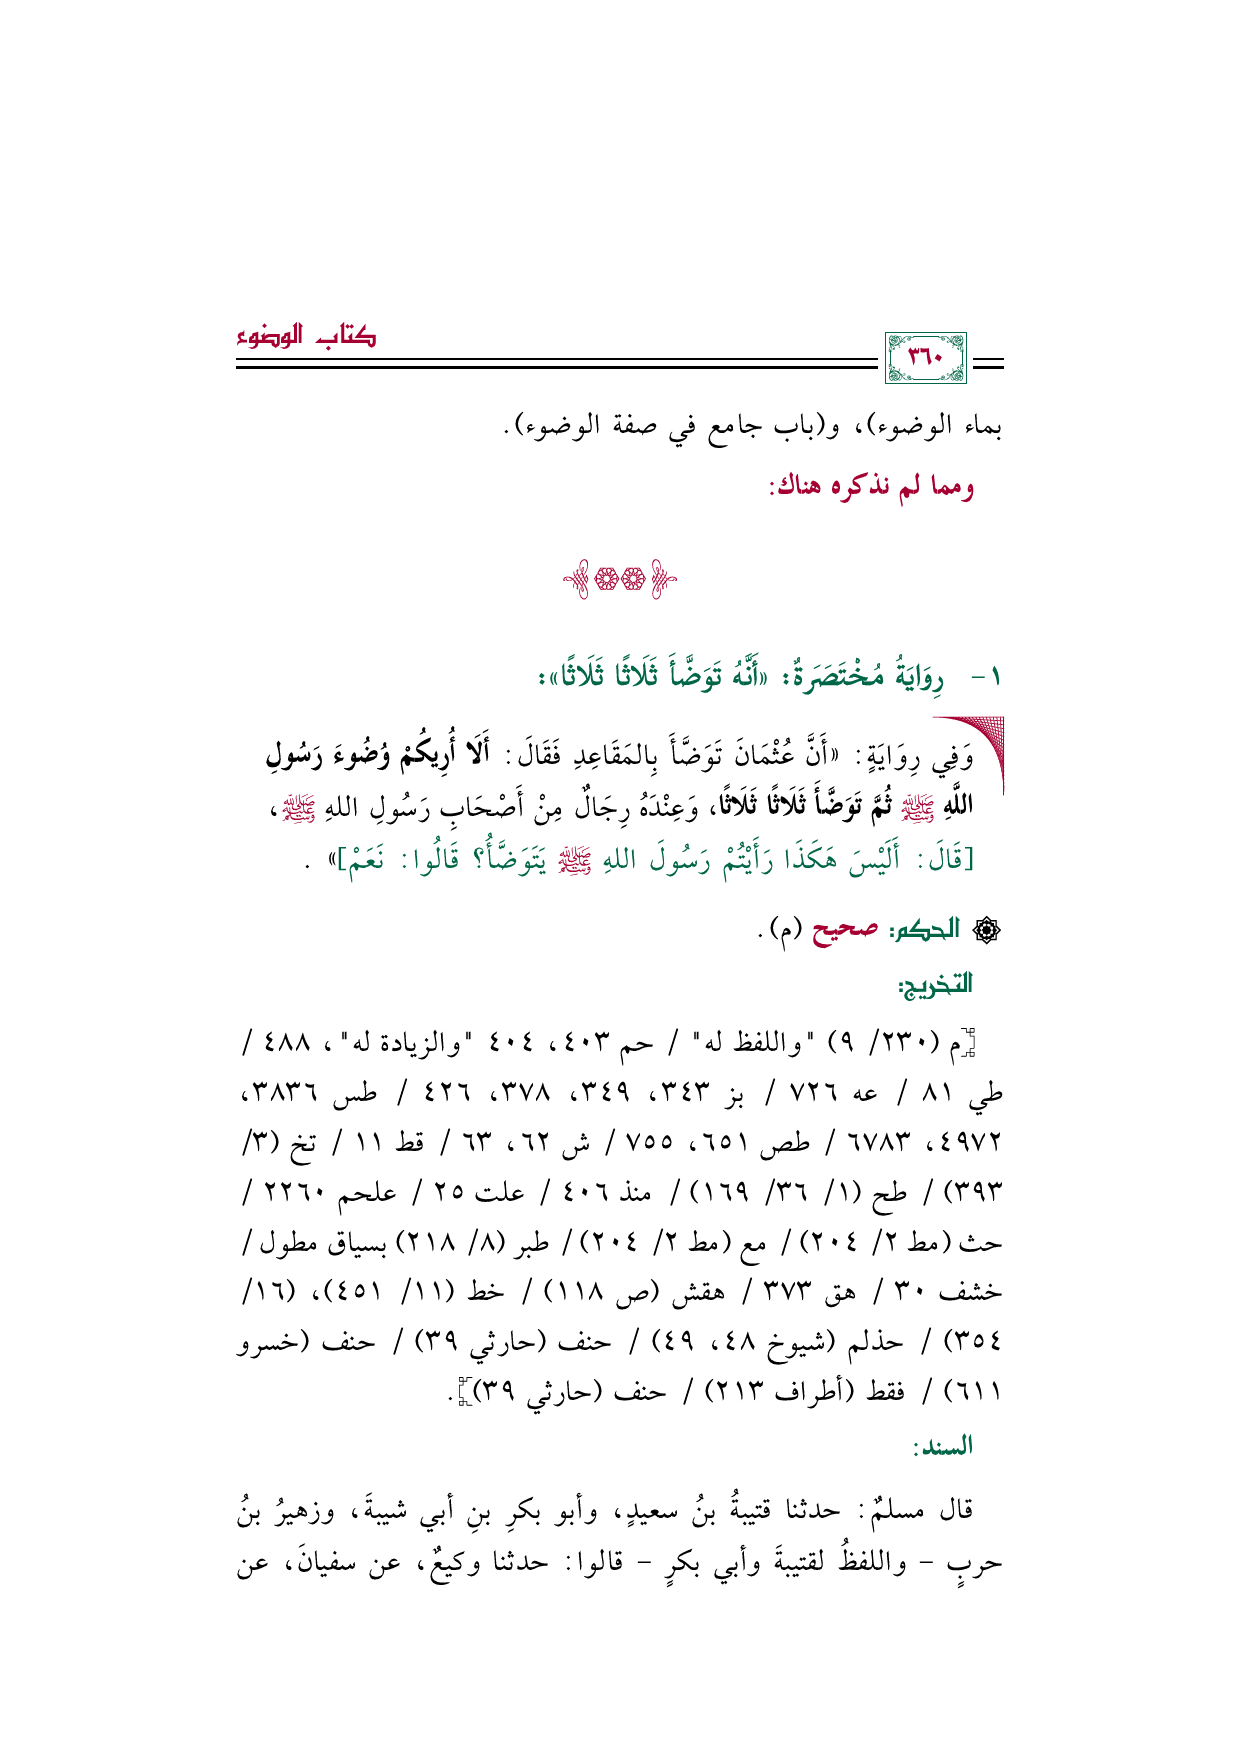 كتاب الوضوء
٣٦٠
بماء الوضوء)، و(باب جامع في صفة الوضوء).
ومما لم نذكره هناك:
١- رِوَايَةُ مُخْتَصَرَةٌ: «أَنَّهُ تَوَضَّأَ ثَلَاثًا ثَلَاثًا»:
وَفِي رِوَايَةٍ: «أَنَّ عُثْمَانَ تَوَضَّأَ بِالمَقَاعِدِ فَقَالَ: أَلَا أُرِيكُمْ وُضُوءَ رَسُولِ
اللَّهِ ﷺ ثُمَّ تَوَضَّأَ ثَلَاثًا ثَلَاثًا، وَعِنْدَهُ رِجَالٌ مِنْ أَصْحَابِ رَسُولِ اللهِ ﷺ،
[قَالَ: أَلَيْسَ هَكَذَا رَأَيْتُمْ رَسُولَ اللهِ ﷺ يَتَوَضَّأُ؟ قَالُوا: نَعَمْ]» .
الحكم: صحيح (م).
التخريج:
[م (٢٣٠/ ٩) "واللفظ له" / حم ٤٠٣، ٤٠٤ "والزيادة له"، ٤٨٨ /
طي ٨١ / عه ٧٢٦ / بز ٣٤٣، ٣٤٩، ٣٧٨، ٤٢٦ / طس ٣٨٣٦،
٤٩٧٢، ٦٧٨٣ / طص ٦٥١، ٧٥٥ / ش ٦٢، ٦٣ / قط ١١ / تخ (٣/
٣٩٣) / طح (١/ ٣٦/ ١٦٩) / منذ ٤٠٦ / علت ٢٥ / علحم ٢٢٦٠ /
حث (مط ٢/ ٢٠٤) / مع (مط ٢/ ٢٠٤) / طبر (٨/ ٢١٨) بسياق مطول /
خشف ٣٠ / هق ٣٧٣ / هقش (ص ١١٨) / خط (١١/ ٤٥١)، (١٦/
٣٥٤) / حذلم (شيوخ ٤٨، ٤٩) / حنف (حارثي ٣٩) / حنف (خسرو
٦١١) / فقط (أطراف ٢١٣) / حنف (حارثي ٣٩)].
السند:
قال مسلمٌ: حدثنا قتيبةُ بنُ سعيدٍ، وأبو بكرِ بنِ أبي شيبةَ، وزهيرُ بنُ
حربٍ - واللفظُ لقتيبةَ وأبي بكرٍ - قالوا: حدثنا وكيعٌ، عن سفيانَ، عن